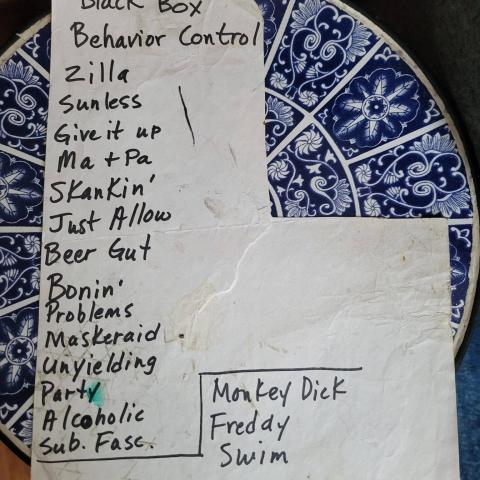 Black Box
Behavior Control
Zilla
Sunless
Give it up
Ma + Pa
Skankin'
Just Allow
Beer Gut
Bonin'
Problems
Maskeraid
Unyielding
Party
Alcoholic
Sub. Fasc.
Monkey Dick
Freddy
Swim